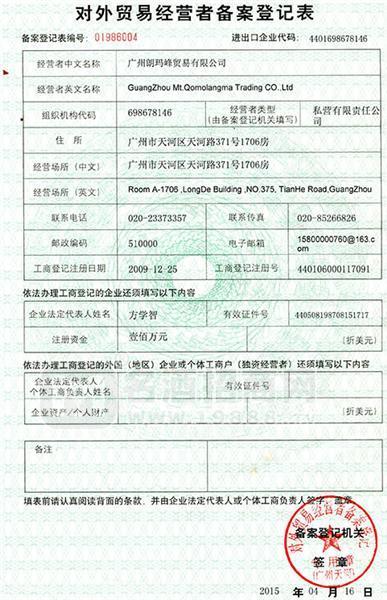 对外贸易经营者备案登记表
备案登记表编号：01986004 进出口企业代码：4401698678146
经营者中文名称 广州朗玛峰贸易有限公司
经营者英文名称 GuangZhou Mt.Qomolangma Trading CO.,Ltd
组织机构代码 698678146 经营者类型（由备案登记机关填写） 私营有限责任公司
住 所 广州市天河区天河路371号1706房
经营场所（中文） 广州市天河区天河路371号1706房
经营场所（英文） Room A-1706 ,LongDe Building ,NO.375, TianHe Road,GuangZhou
联系电话 020-23373357 联系传真 020-85266826
邮政编码 510000 电子邮箱 15800000760@163.com
工商登记注册日期 2009-12-25 工商登记注册号 440106000117091
依法办理工商登记的企业还须填写以下内容
企业法定代表人姓名 方学智 有效证件号 440508198708151717
注册资金 壹佰万元 （折美元）
依法办理工商登记的外国（地区）企业或个体工商户（独资经营者）还须填写以下内容
企业法定代表人/个体工商负责人姓名 有效证件号
企业资产/个人财产 （折美元）
备注：
填表前请认真阅读背面的条款，并由企业法定代表人或个体工商负责人签字、盖章
备案登记机关
签 章
对外贸易经营者备案登记
专用章
（广州天河）
2015 年 04 月 16 日